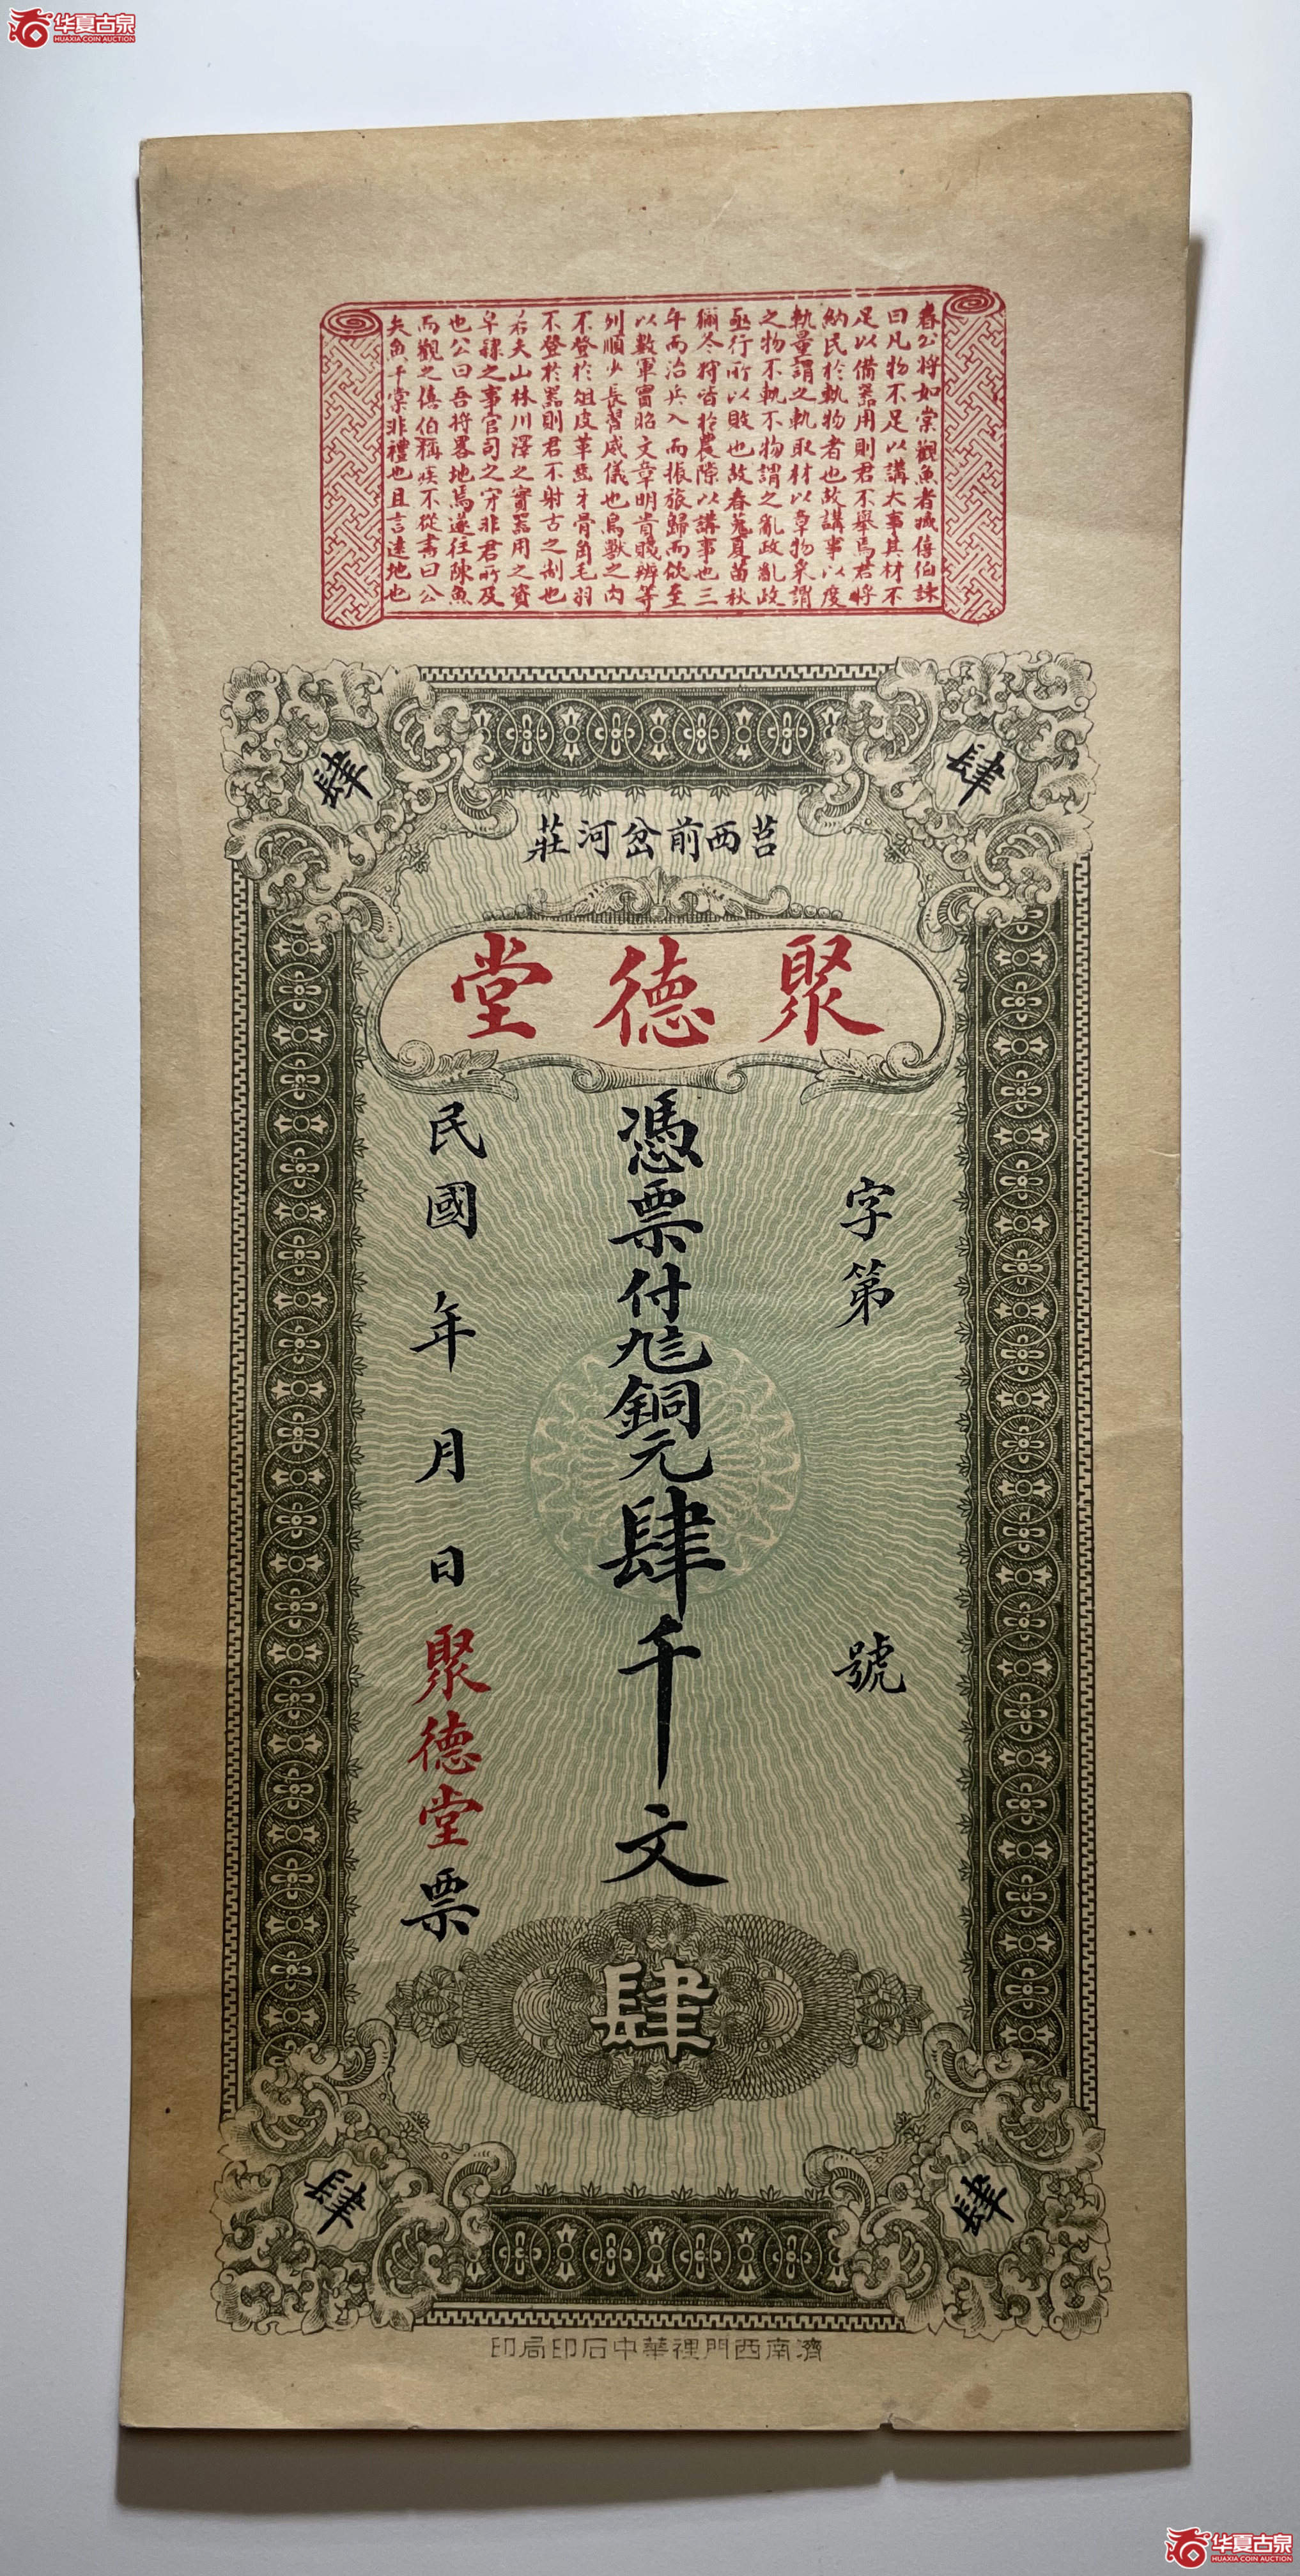 华夏古泉
HUAXIA COIN AUCTION
春公将如棠觀魚者臧僖伯諫
曰凡物不足以講大事其材不
足以備器用則君不舉焉君將
納民於軌物者也故講事以度
軌量謂之軌取材以章物采謂
之物不軌不物謂之亂政亂政
亟行所以敗也故春蒐夏苗秋
獮冬狩皆於農隙以講事也三
年而治兵入而振旅歸而飲至
以數軍實昭文章明貴賤辨等
列順少長習威儀也鳥獸之肉
不登於俎皮革齒牙骨角毛羽
不登於器則君不射古之制也
若夫山林川澤之實器用之資
皁隸之事官司之守非君所及
也公曰吾将畧地焉遂往陳魚
而觀之僖伯稱疾不從書曰公
矢魚于棠非禮也且言遠地也
肆
肆
莒西前岔河莊
聚德堂
字第 號
憑票付銅元肆千文
民國 年 月 日聚德堂票
肆
肆
肆
濟南西門裡華中石印局印
华夏古泉
HUAXIA COIN AUCTION